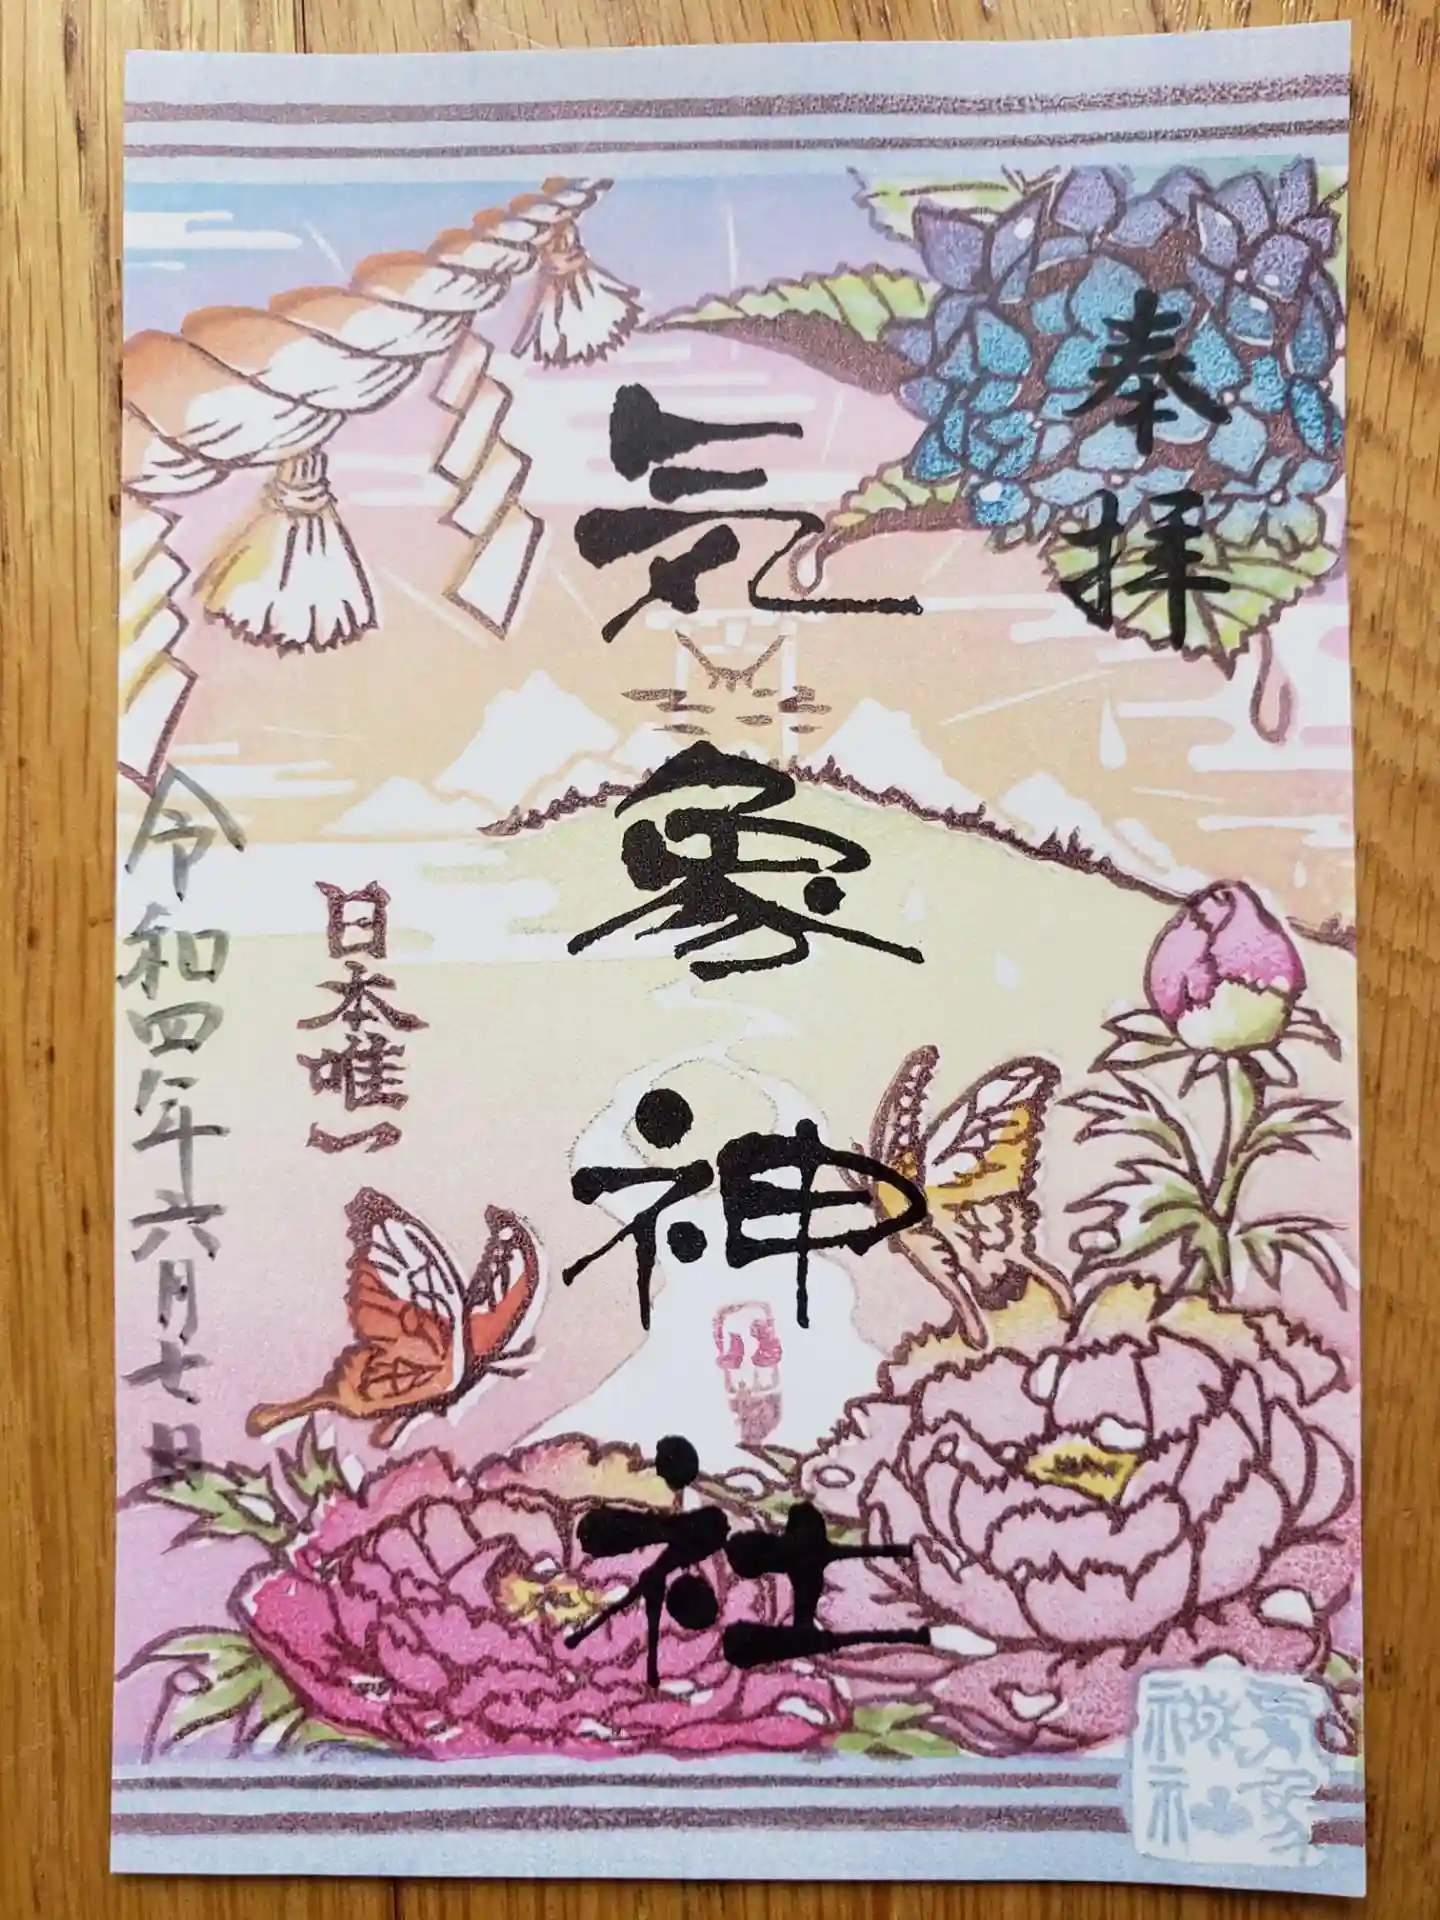 奉拝
気象神社
日本唯一
令和四年六月七日
気象
神社